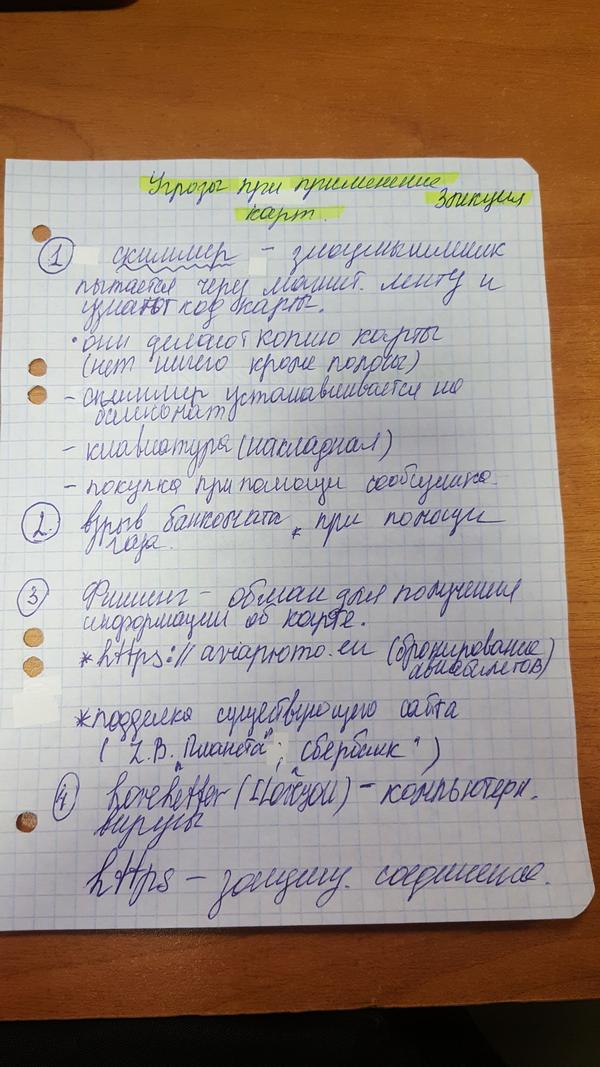 Угрозы при применение
3 лекция
карт.
1 скиммер - злоумышленник
пытается через магнит. ленту и
узнают код карты.
• они делают копию карты
(нет ничего кроме полосы)
- скиммер устанавливается на
банкомат
- клавиатура (накладная)
- покупка при помощи сообщника.
2. взрыв банкомата * при помощи
газа.
3 Фишинг - обман для получения
информации об карте.
* https://aviapromo.eu (бронирование
авиабилетов)
* подделка существующего сайта
( Z.B. "Планета"; "Сбербанк")
4 LoveLetter (ILoveyou) - компьютерн.
вирусы
https - защищ. соединение.